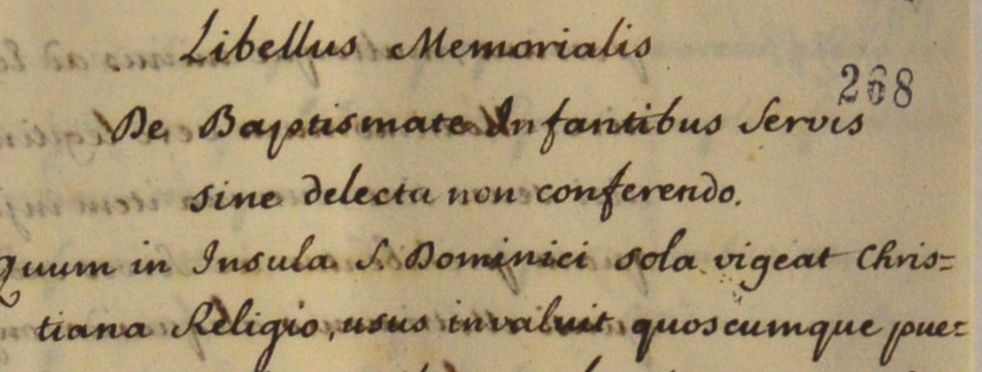 Libellus Memorialis
268
De Baptismate Infantibus Servis
sine delectu non conferendo.
Quum in Insula S. Dominici sola vigeat Chris=
tiana Religio, usus invaluit quoscumque pue=